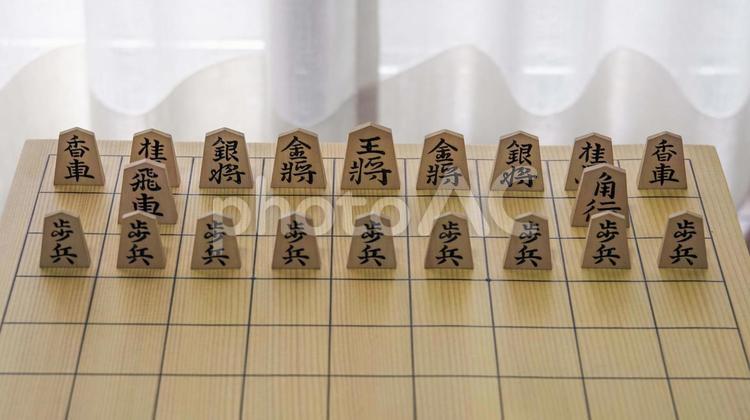 香車 桂 銀将 金将 王将 金将 銀将 桂 香車
飛車 角行
歩兵 歩兵 歩兵 歩兵 歩兵 歩兵 歩兵 歩兵 歩兵
photoAC